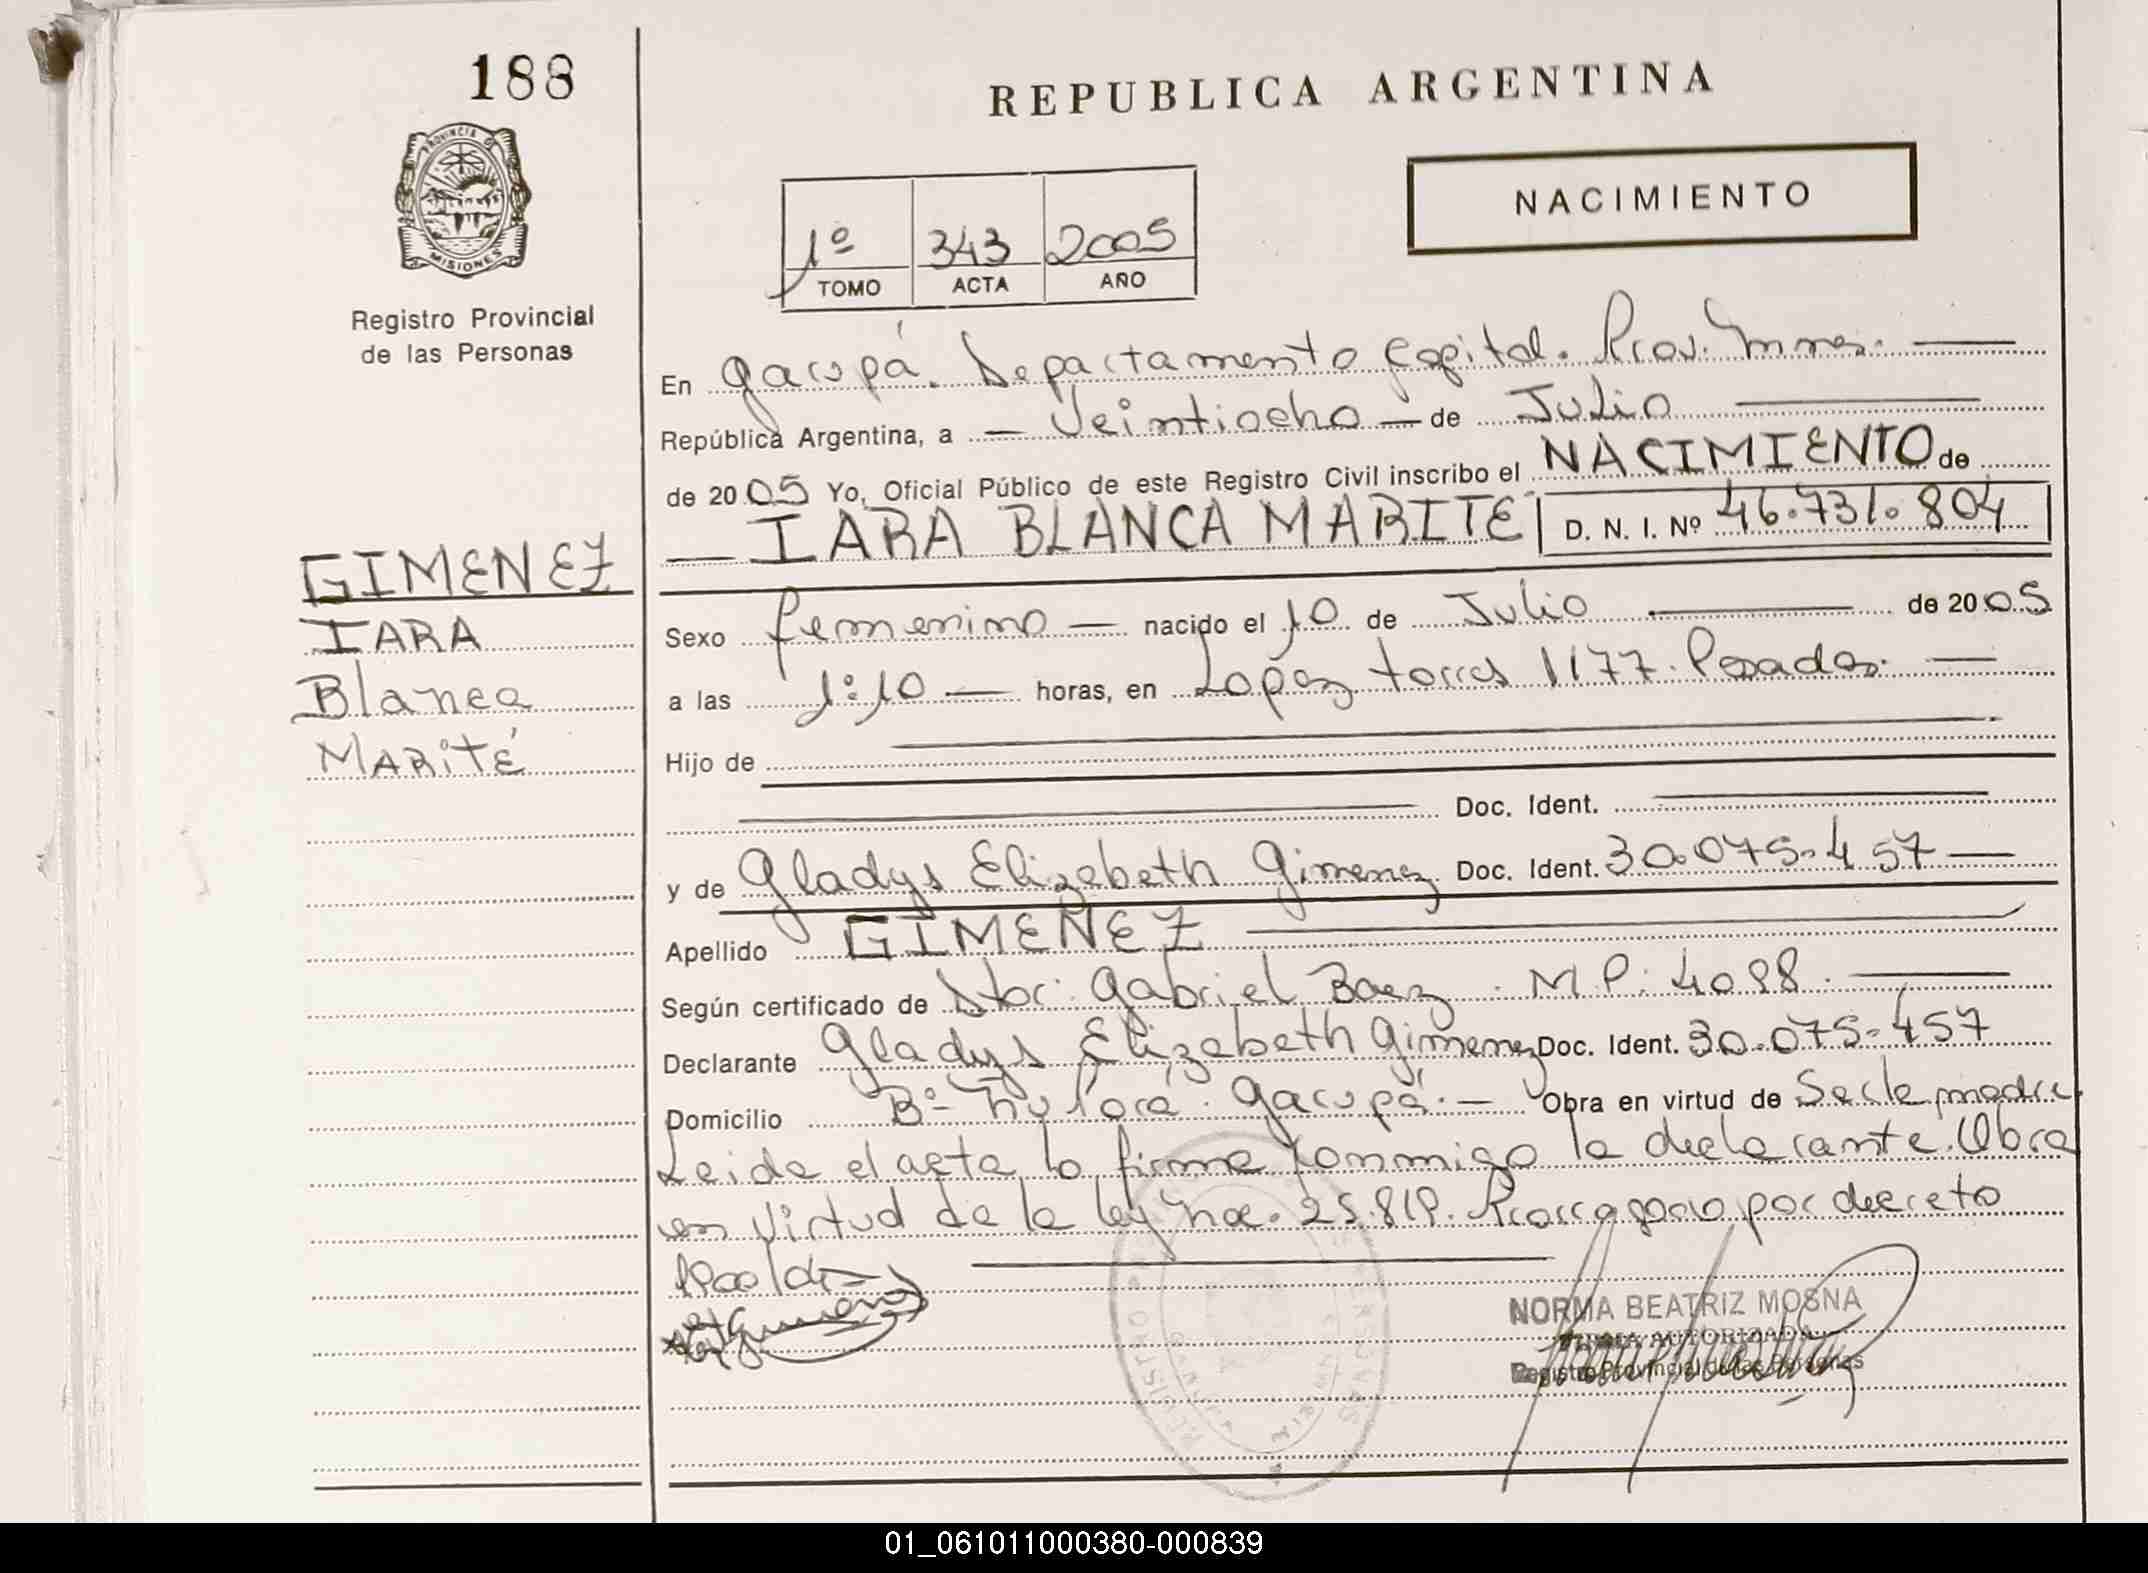 188
REPUBLICA ARGENTINA
PROVINCIA DE
MISIONES
NACIMIENTO
1º 343 2005
TOMO ACTA AÑO
Registro Provincial
de las Personas
En Garupá. Departamento Capital. Prov. Mnes.
República Argentina, a — Veintiocho — de Julio
de 2005 Yo, Oficial Público de este Registro Civil inscribo el NACIMIENTO de
— IARA BLANCA MARITE D. N. I. Nº 46.731.804
GIMENEZ
IARA
Blanca
MARITÉ
Sexo femenino — nacido el 10 de Julio de 2005
a las 1:10 — horas, en Lopez torres 1177. Posadas. —
Hijo de
Doc. Ident.
y de Gladys Elizabeth Gimenez Doc. Ident. 30.075.457 —
Apellido GIMENEZ
Según certificado de Dtor: Gabriel Baez. M.P: 4098.
Declarante Gladys Elizabeth Gimenez Doc. Ident. 30.075.457
Domicilio Bº Garupá. — Obra en virtud de Ser la madre
Leida el acta la firma conmigo la declarante. Obra
en virtud de la ley nro. 25.819. Prorrogado por decreto
NORMA BEATRIZ MOSNA
FIRMA AUTORIZADA
Registro Provincial de las Personas
01_061011000380-000839